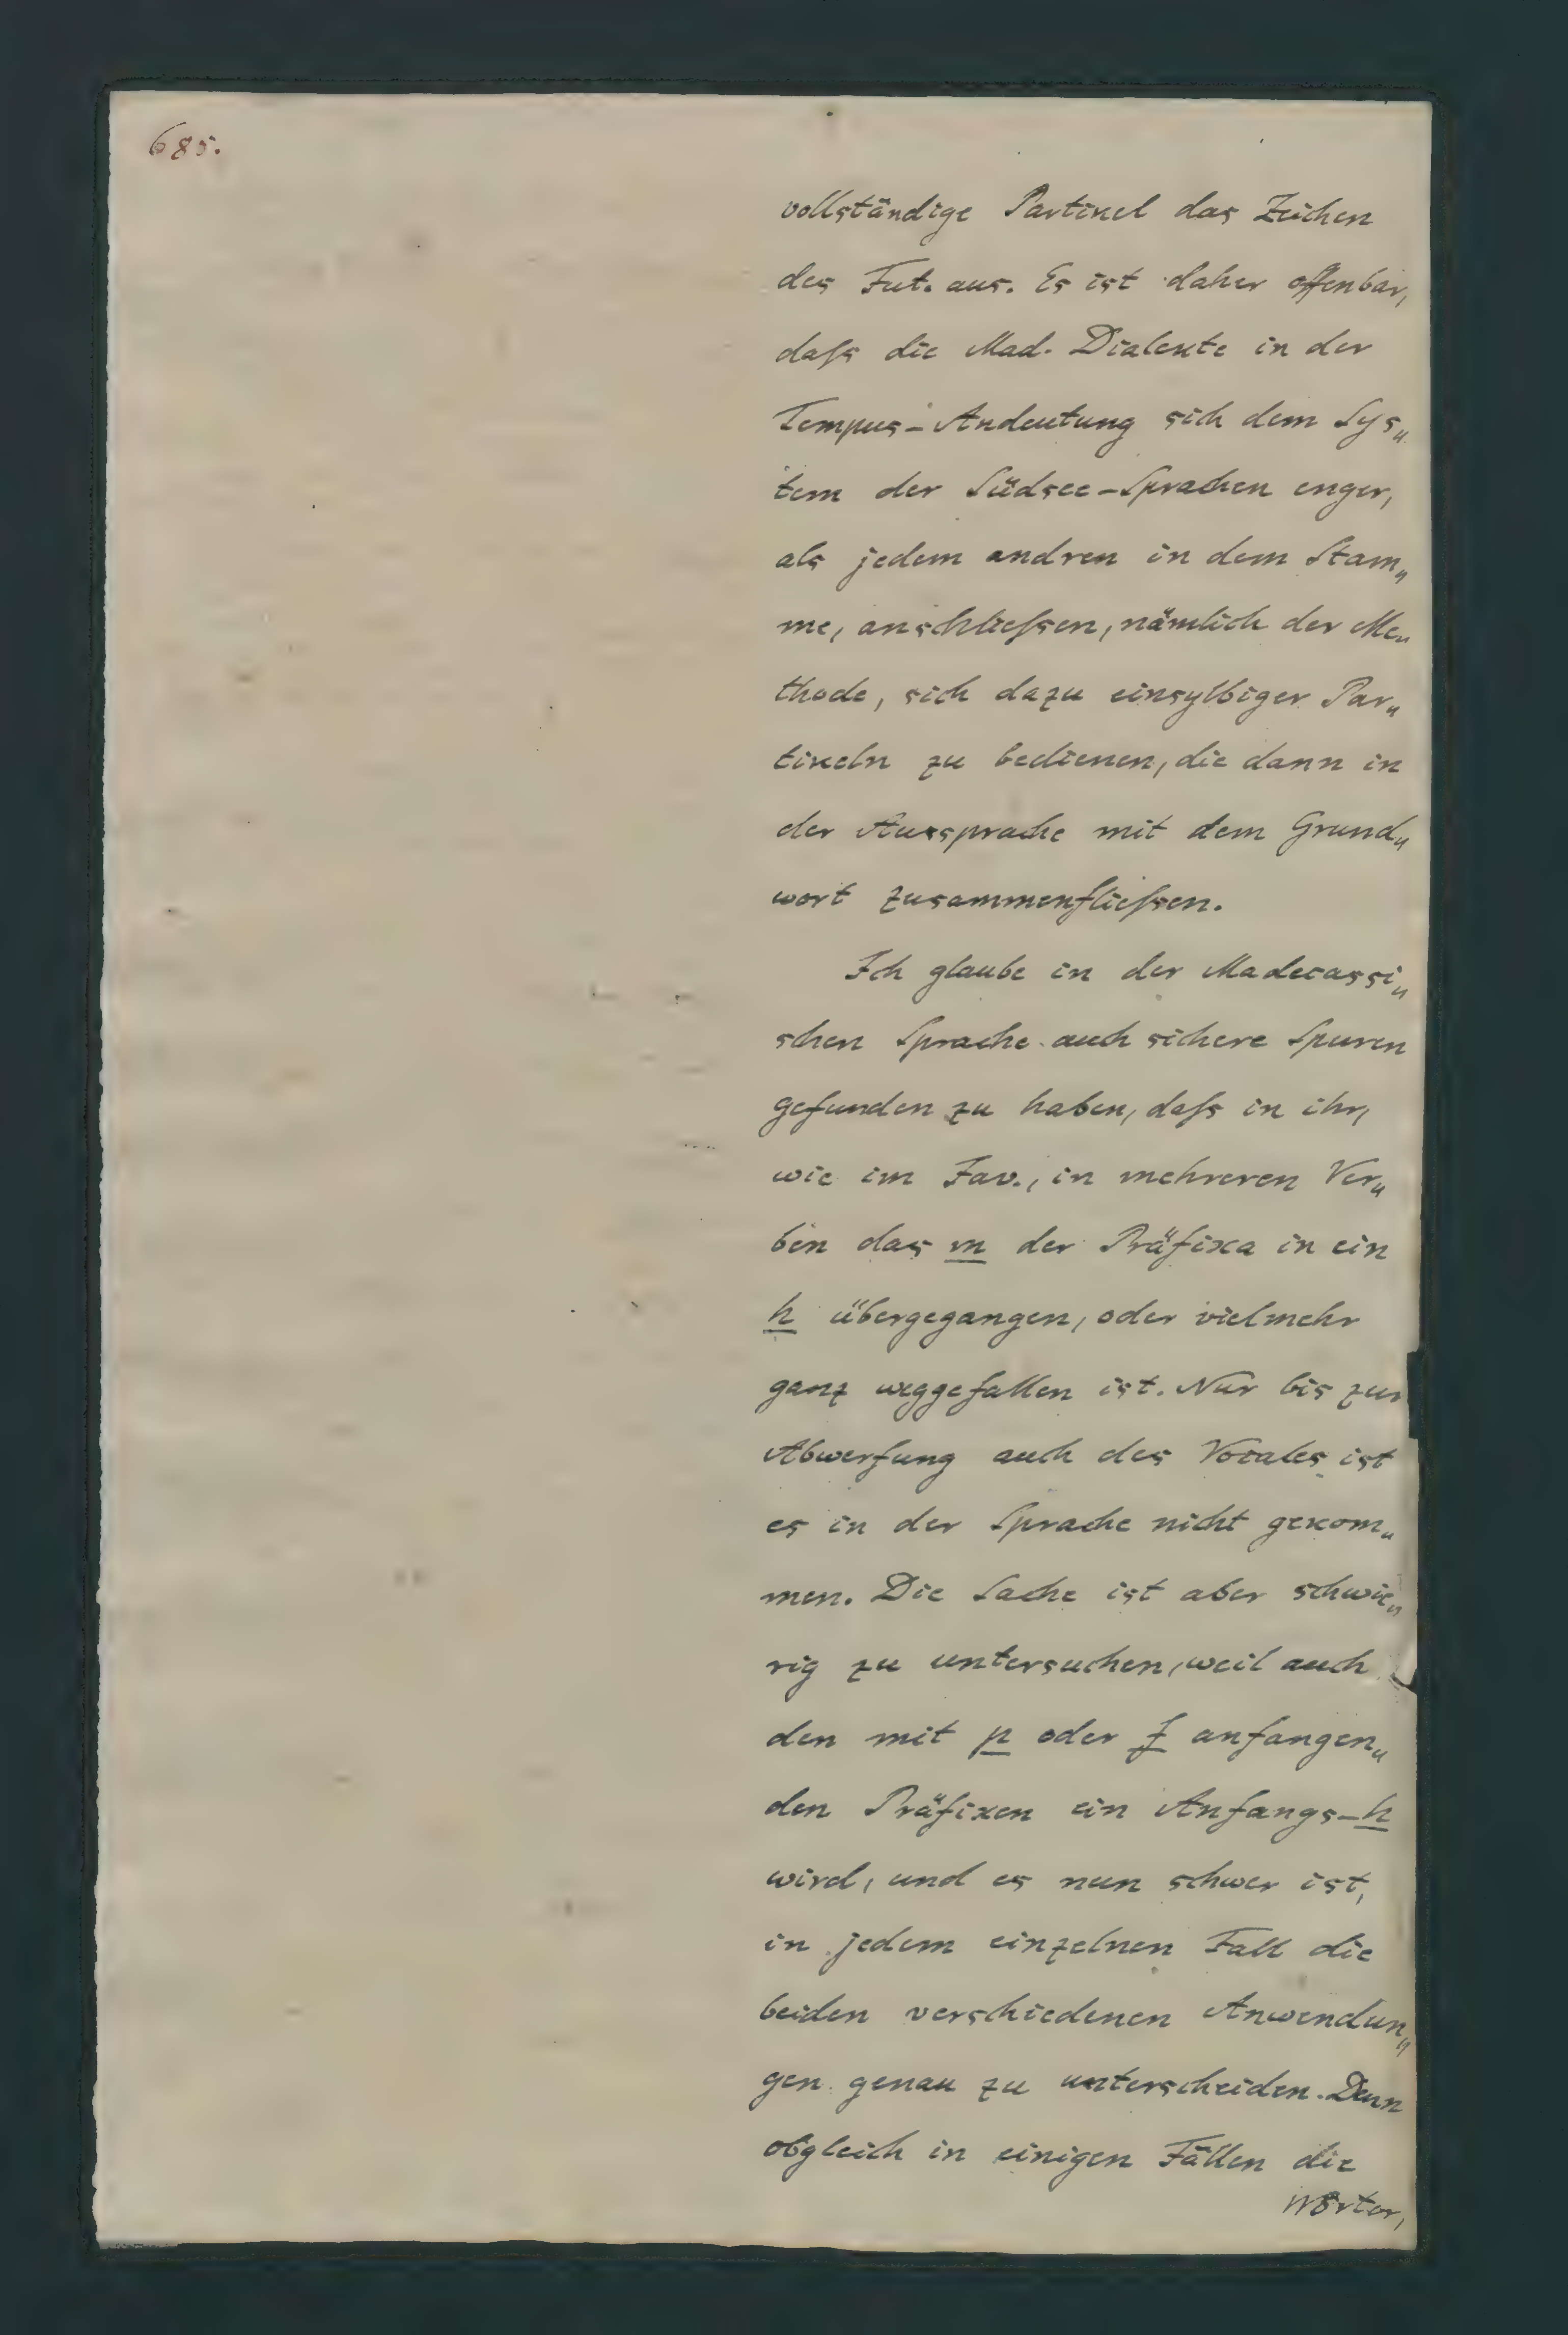 685.
vollständige Partikel das Zeichen
des Fut. aus. Es ist daher offenbar,
daſs die Mad. Dialekte in der
Tempus-Andeutung sich dem Sys„
tem der Südsee-Sprachen enger,
als jedem andren in dem Stam„
me, anschlieſsen, nämlich der Me„
thode, sich dazu einsylbiger Par„
tikeln zu bedienen, die dann in
der Aussprache mit dem Grund„
wort zusammenflieſsen.
Ich glaube in der Madecassi„
schen Sprache auch sichere Spuren
gefunden zu haben, daſs in ihr,
wie im Jav., in mehreren Ver„
ben das m der Präfixa in ein
h übergegangen, oder vielmehr
ganz weggefallen ist. Nur bis zur
Abwerfung auch des Vocales ist
es in der Sprache nicht gekom„
men. Die Sache ist aber schwie„
rig zu untersuchen, weil auch
den mit p oder f anfangen„
den Präfixen ein Anfangs-h
wird, und es nun schwer ist,
in jedem einzelnen Fall die
beiden verschiedenen Anwendun„
gen genau zu unterscheiden. Denn
obgleich in einigen Fällen die
Wörter,